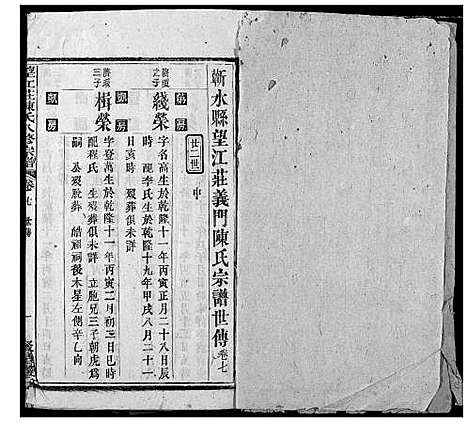 蘄水縣望江莊義門陳氏宗譜世傳 卷七
廿二世 中
之子
綫榮
字名高生於乾隆十一年丙寅正月二十八日辰
時 配李氏生於乾隆十九年甲戌八月二十一
日亥時 歿葬俱未詳
三子
楫榮
字登萬生於乾隆十一年丙寅二月初三日巳時
配程氏 生歿葬俱未詳 立胞兄三子朝虎為
嗣 公歿 葬 皓 祠後木星左側辛乙向
望江莊陳氏八修宗譜
卷七 世傳
一